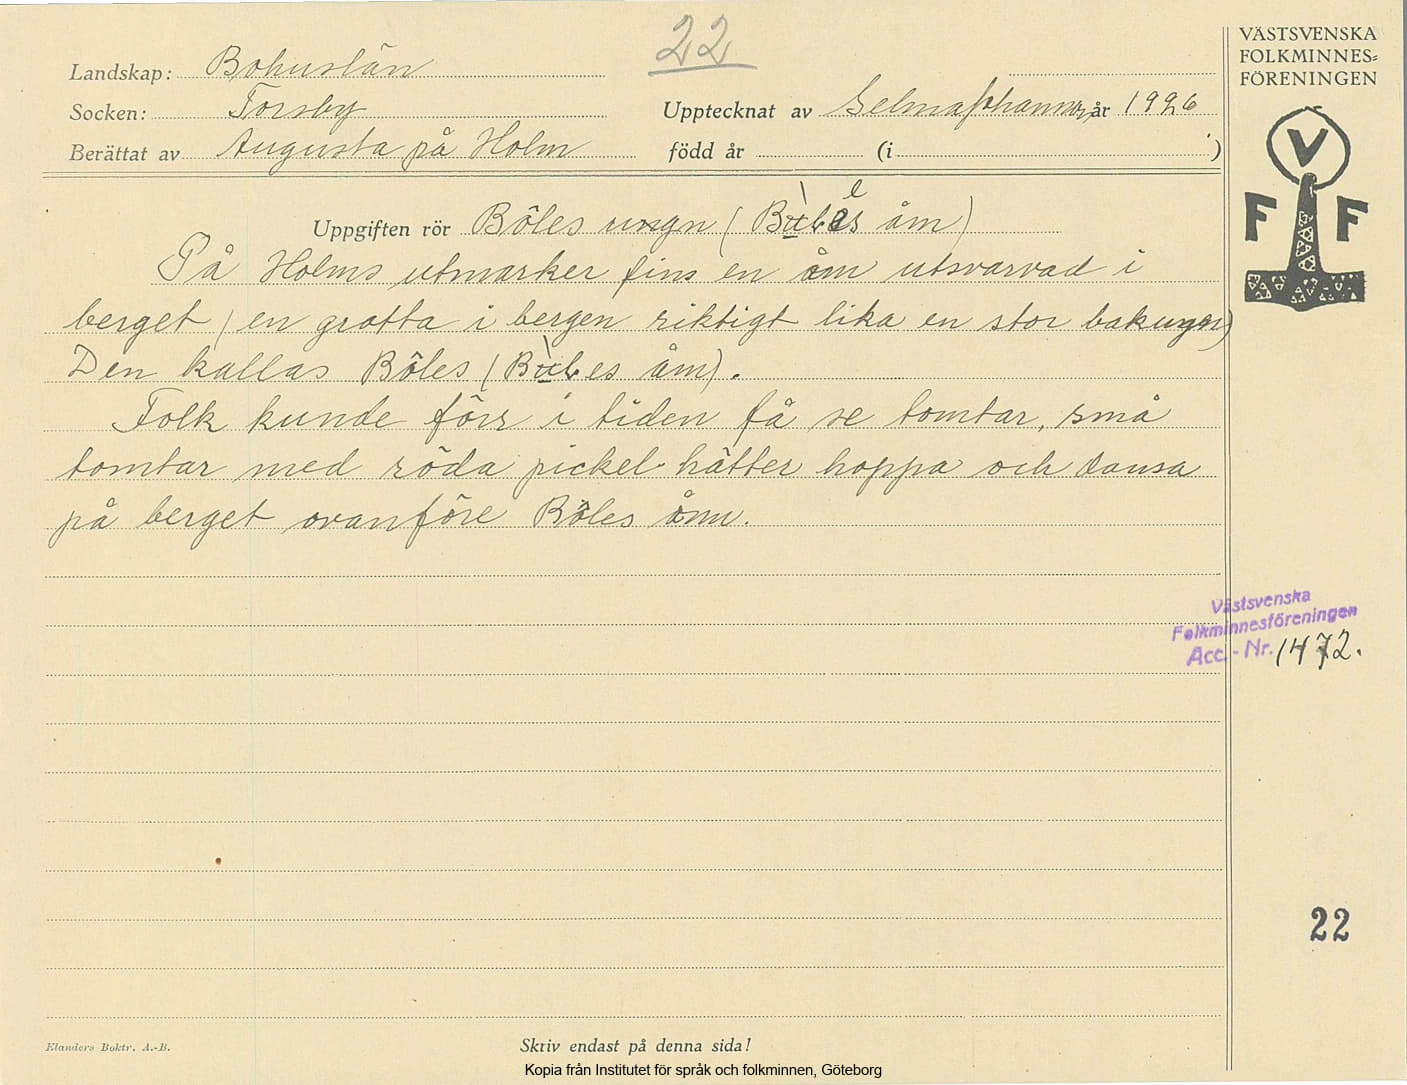 22
VÄSTSVENSKA
FOLKMINNES=
FÖRENINGEN
Landskap: Bohuslän
Socken: Torsby Upptecknat av Selma Johannes år 1926
Berättat av Augusta på Holm född år (i )
V
F F
Uppgiften rör Böles ungn ( åm)
På Holms utmarker fins en åm utsvarvad i
berget (en grotta i bergen riktigt lika en stor bakungn)
Den kallas Böles ( åm).
Folk kunde förr i tiden få se tomtar, små
tomtar med röda pickel hätter hoppa och dansa
på berget ovanföre Böles åmn.
Västsvenska
Folkminnesföreningen
Acc.-Nr. 1472.
22
Elanders Boktr. A.-B.
Skriv endast på denna sida!
Kopia från Institutet för språk och folkminnen, Göteborg